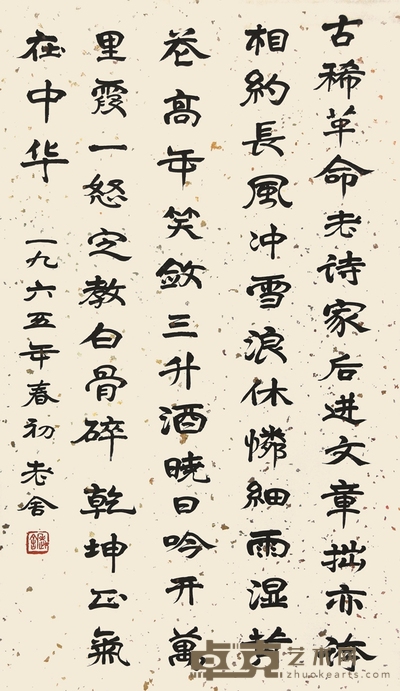 古稀革命老诗家后进文章拙亦涂
相約長風冲雪浪休憐細雨湿
花高年笑斂三升酒曉日吟开萬
里霞一怒定教白骨碎乾坤正氣
在中华 一九六五年春初 老舍
卓克艺术网
zhuokearts.com